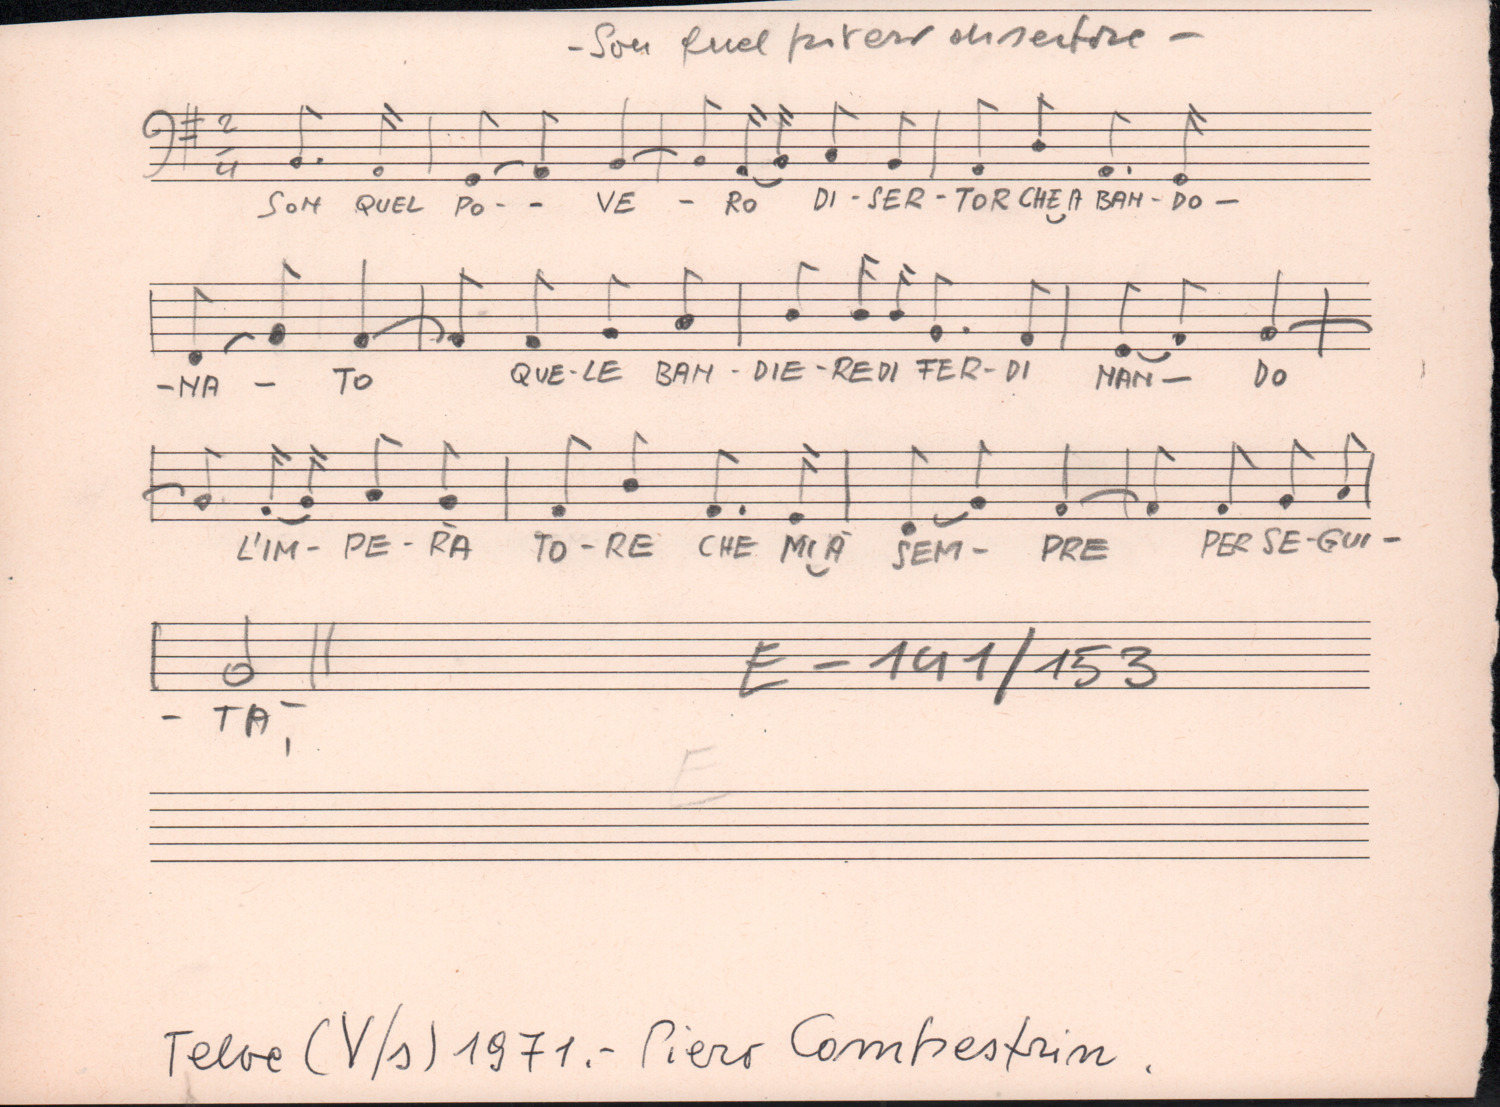 - Son quel povero disertore -
2/4
SON QUEL PO - - VE - RO DI - SER - TOR CHE A BAN - DO -
- NA - TO QUE - LE BAN - DIE - RE DI FER - DI NAN - DO
L'IM - PE - RÀ TO - RE CHE MI À SEM - PRE PER SE - GUI -
- TA'
E - 141/153
E
Telve (V/s) 1971. - Piero